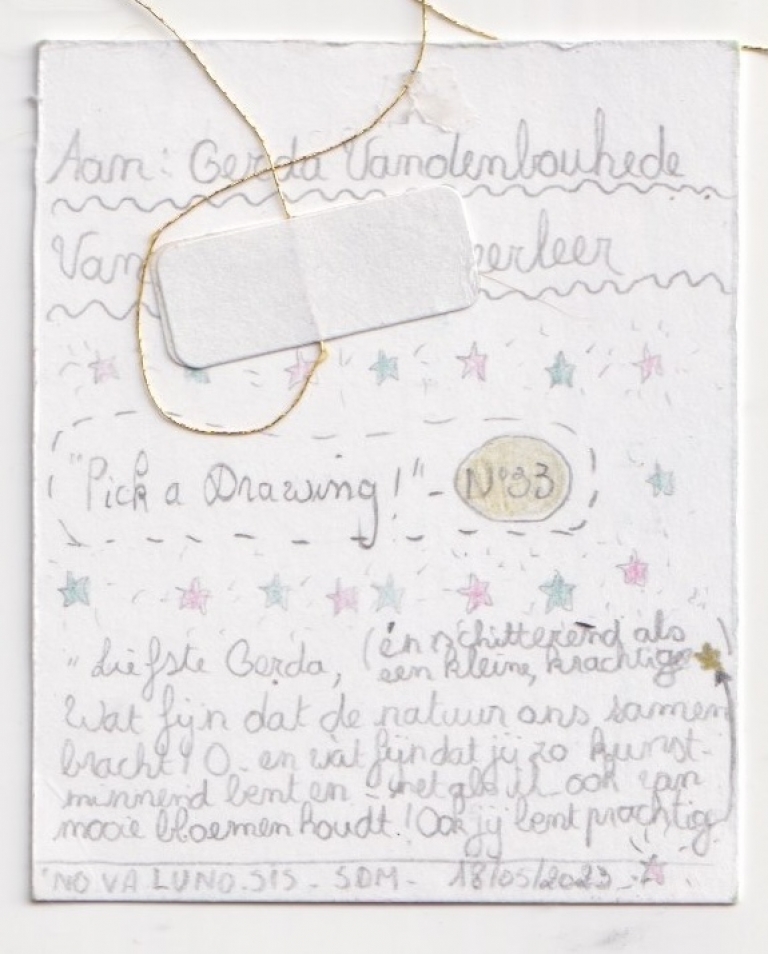 Aan: Gerda Vandenbouhede
Van erleer
"Pick a Drawing!" - N°33
(én schitterend als
"Liefste Gerda, een kleine, krachtige )
Wat fijn dat de natuur ons samen
bracht! O en wat fijn dat jij zo kunst-
minnend bent en - net als ik ook van
mooie bloemen houdt! Ook jij bent prachtig
NOVA LUNO.SIS - SDM - 18/05/2023 -